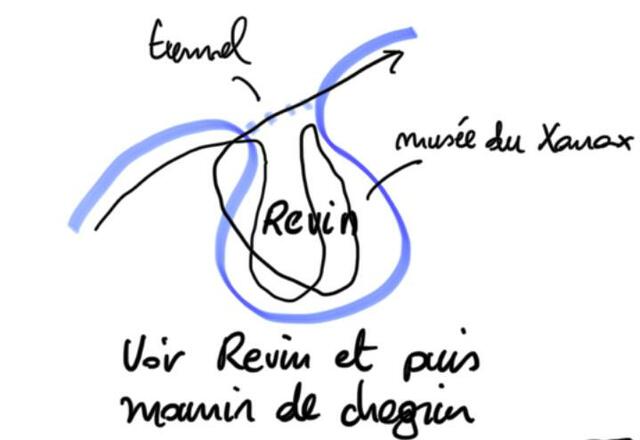 tunnel
musée du Xanax
Revin
Voir Revin et puis
mourir de chagrin